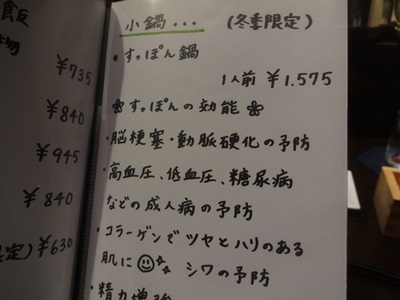 飯
¥735
¥840
¥945
¥840
定) ¥630
小鍋... (冬季限定)
・すっぽん鍋
1人前 ¥1.575
すっぽんの効能
・脳梗塞・動脈硬化の予防
・高血圧、低血圧、糖尿病
などの成人病の予防
・コラーゲンでツヤとハリのある
肌に シワの予防
・精力増強